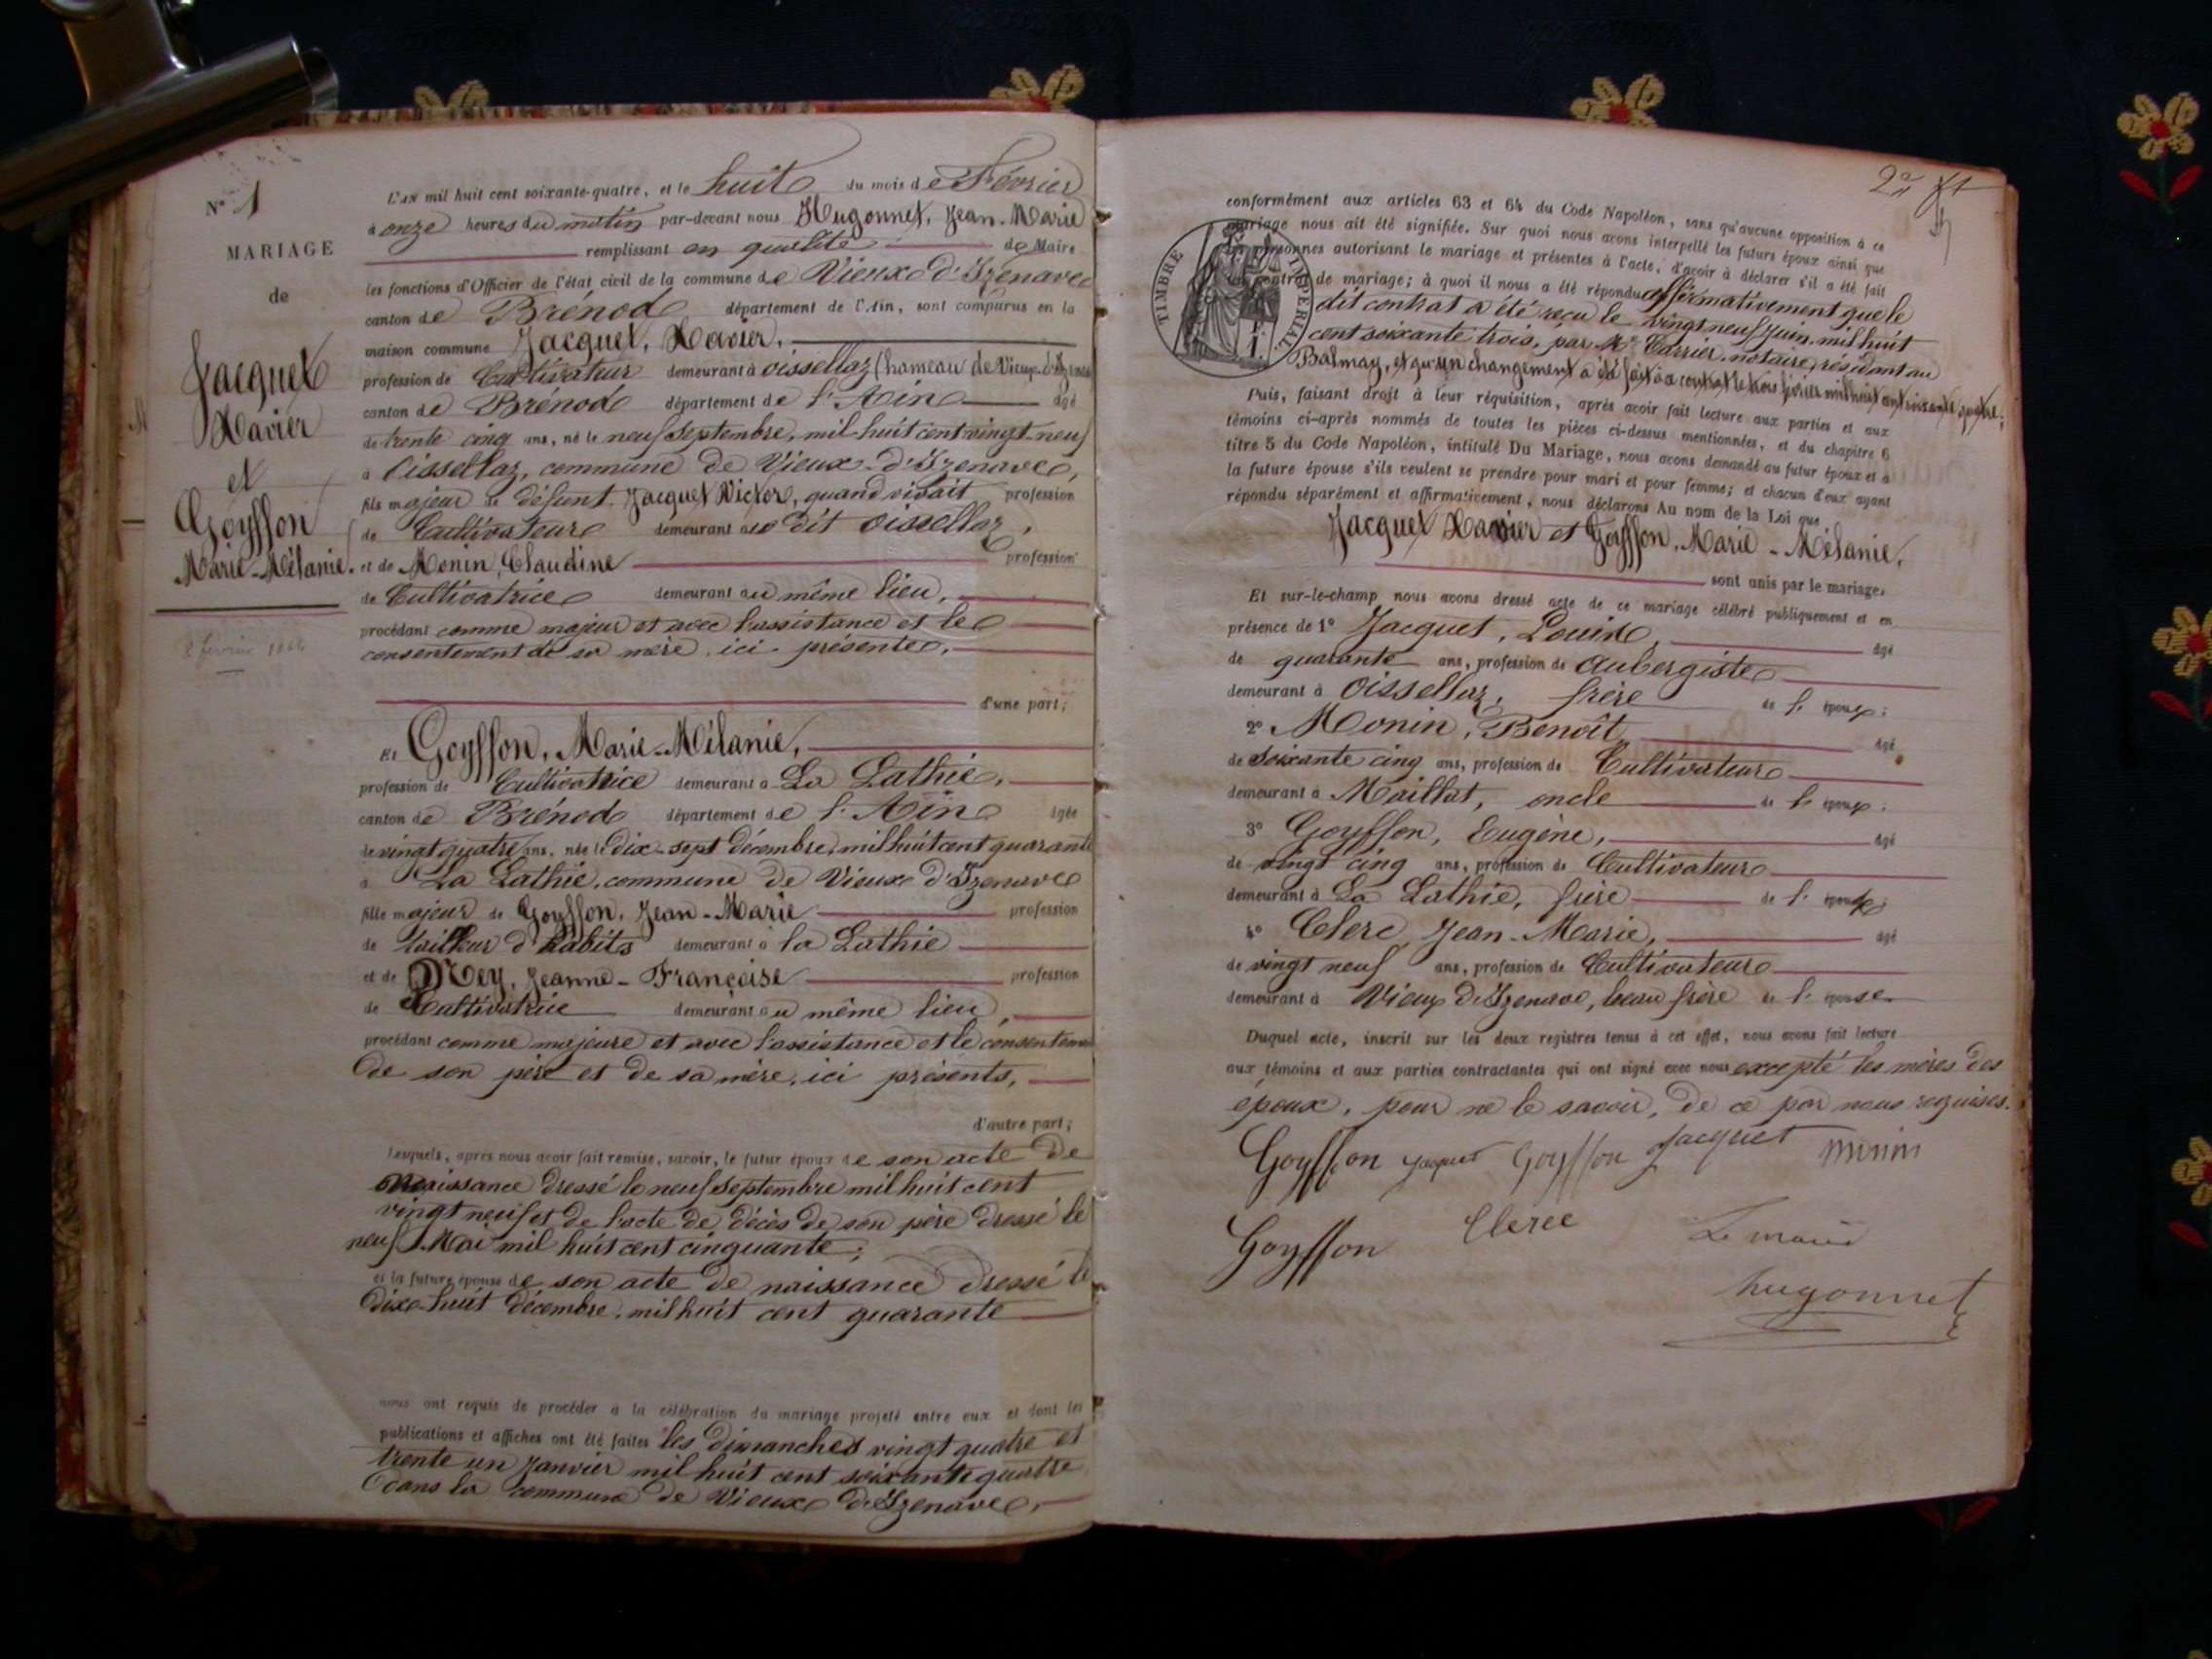 N° 1
MARIAGE
de
Jacquet
Xavier
et
Goyffon
Marie-Mélanie.
8 février 1864
L'an mil huit cent soixante-quatre, et le huit du mois de Février
à onze heures du matin par-devant nous Hugonnet, Jean-Marie
remplissant en qualité de Maire
les fonctions d'Officier de l'état civil de la commune de Vieux d'Izenave
canton de Brénod département de l'Ain, sont comparus en la
maison commune Jacquet, Xavier,
profession de Cultivateur demeurant à Oissellaz (hameau de Vieux-d'Izenave
canton de Brénod département de l'Ain âgé
de trente cinq ans, né le neuf Septembre, mil huit cent vingt-neuf
à Oissellaz, commune de Vieux-d'Izenave,
fils majeur de défunt Jacquet Victor, quand vivait profession
de Cultivateur demeurant au dit Oissellaz,
et de Monin, Claudine profession
de Cultivatrice demeurant au même lieu,
procédant comme majeur et avec l'assistance et le
consentement de sa mère, ici présente,
d'une part;
Et Goyffon, Marie-Mélanie,
profession de Cultivatrice demeurant à La Lathie,
canton de Brénod département de l'Ain âgée
de vingt quatre ans, née le dix-sept décembre, mil huit cent quarante
à La Lathie, commune de Vieux d'Izenave
fille majeur de Goyffon, Jean-Marie profession
de tailleur d'habits demeurant à la Lathie
et de Rey, Jeanne-Françoise profession
de Cultivatrice demeurant au même lieu,
procédant comme majeure et avec l'assistance et le consentement
de son père et de sa mère, ici présents,
d'autre part;
Lesquels, après nous avoir fait remise, savoir, le futur époux de son acte de
naissance dressé le neuf Septembre mil huit cent
vingt neuf et de l'acte de décès de son père dressé le
neuf Mai mil huit cent cinquante;
et la future épouse de son acte de naissance dressé le
dix-huit décembre, mil huit cent quarante
nous ont requis de procéder à la célébration du mariage projeté entre eux et dont les
publications et affiches ont été faites les dimanches vingt quatre et
trente un Janvier mil huit cent soixante quatre
dans la commune de Vieux d'Izenave,
2
conformément aux articles 63 et 64 du Code Napoléon, sans qu'aucune opposition à ce
mariage nous ait été signifiée. Sur quoi nous avons interpellé les futurs époux ainsi que
les personnes autorisant le mariage et présentes à l'acte, d'avoir à déclarer s'il a été fait
un contrat de mariage; à quoi il nous a été répondu affirmativement que le
TIMBRE IMPERIAL
dit contrat a été reçu le vingt neuf Juin, mil huit
cent soixante trois, par Me Carrier, notaire, résidant au
Balmay, et qu'un changement a été fait à ce contrat le trois février mil huit cent soixante quatre;
Puis, faisant droit à leur réquisition, après avoir fait lecture aux parties et aux
témoins ci-après nommés de toutes les pièces ci-dessus mentionnées, et du chapitre 6
titre 5 du Code Napoléon, intitulé Du Mariage, nous avons demandé au futur époux et à
la future épouse s'ils veulent se prendre pour mari et pour femme; et chacun d'eux ayant
répondu séparément et affirmativement, nous déclarons Au nom de la Loi que
Jacquet Xavier et Goyffon, Marie-Mélanie,
sont unis par le mariage.
Et sur-le-champ nous avons dressé acte de ce mariage célébré publiquement et en
présence de 1° Jacquet, Louis, âgé
de quarante ans, profession de aubergiste
demeurant à Oissellaz, frère de l'époux;
2° Monin, Benoît âgé
de soixante cinq ans, profession de Cultivateur
demeurant à Maillat, oncle de l'époux;
3° Goyffon, Eugène, âgé
de vingt cinq ans, profession de Cultivateur
demeurant à La Lathie, frère de l'épouse;
4° Clerc, Jean-Marie, âgé
de vingt neuf ans, profession de Cultivateur
demeurant à Vieux d'Izenave, beau frère de l'épouse.
Duquel acte, inscrit sur les deux registres tenus à cet effet, nous avons fait lecture
aux témoins et aux parties contractantes qui ont signé avec nous excepté les mères des
époux, pour ne le savoir, de ce par nous requises.
Goyffon Jacquet Goyffon Jacquet Monin
Goyffon Clerc Le maire
hugonnet